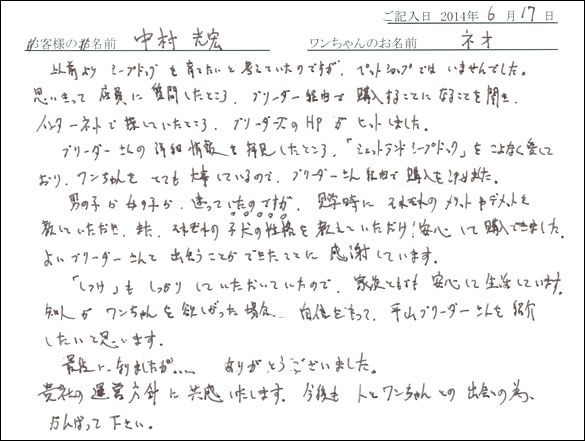 ご記入日 2014年 6 月 17 日
お客様のお名前 中村 光宏 ワンちゃんのお名前 ネオ
以前より シープドッグ を育てたいと考えていたのですが、ペットショップでは いませんでした。
思いきって 店員に 質問したところ、ブリーダー経由で 購入することになることを聞き、
インターネットで 探していたところ、ブリーダーズのHP が ヒットしました。
ブリーダーさんの 詳細情報を拝見したところ、「シェットランドシープドック」を こよなく愛して
おり、ワンちゃんを とても 大事しているので、ブリーダーさん経由で購入を決めました。
男の子か 女の子か、迷っていたのですが、見学時に それぞれの メリットやデメリットを
教えていただき、また、それぞれの 子犬の性格を 教えていただけ!安心して購入できました。
よいブリーダーさんと 出会うことができたことに 感謝しています。
「しつけ」も しっかり していただいていたので、家族ともども 安心して 生活しています。
知人が ワンちゃんを 欲しがった場合... 自信をもって、平山ブリーダーさんを紹介
したいと思います。
最後に なりましたが..... ありがとうございました。
貴社の 運営方針に 共感いたします。今後も 人とワンちゃん との 出会いの為、
がんばって下さい。